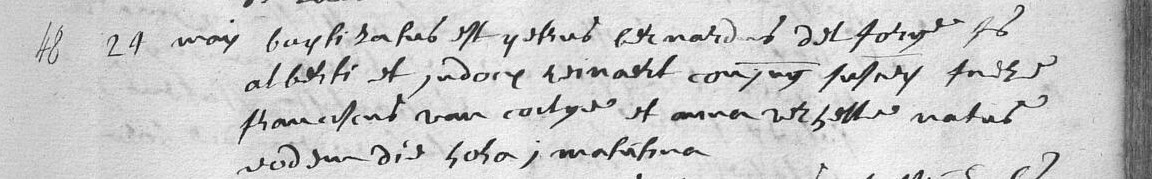 48 24 maij baptisatus est petrus bernardus del forge fs
alberti et judocæ reinaert conjug susceper fuere
franciscus van coelge et anna verhelle natus
eodem die hora j matutina